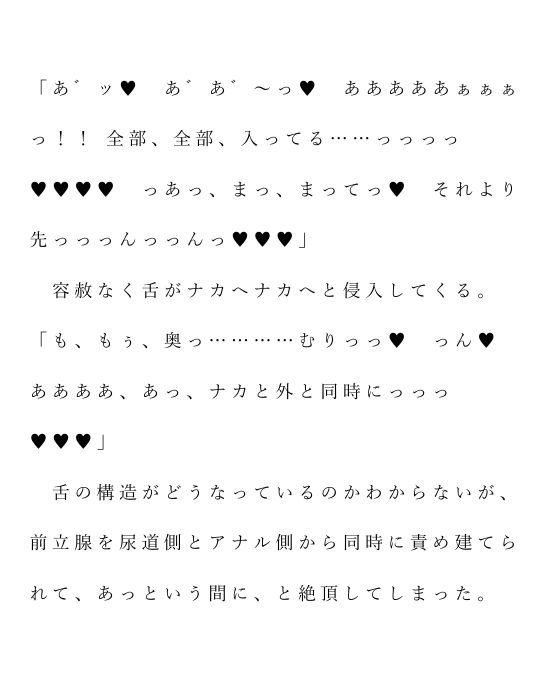 「あ゛ッ♥　あ゛あ゛～っ♥　あああああぁぁぁ
っ！！ 全部、全部、入ってる……っっっっ
♥♥♥♥　っあっ、まっ、まってっ♥　それより
先っっっんっっんっ♥♥♥」
　容赦なく舌がナカへナカへと侵入してくる。
「も、もぅ、奥っ…………むりっっ♥　っん♥
ああああ、あっ、ナカと外と同時にっっっ
♥♥♥」
　舌の構造がどうなっているのかわからないが、
前立腺を尿道側とアナル側から同時に責め建てら
れて、あっという間に、と絶頂してしまった。